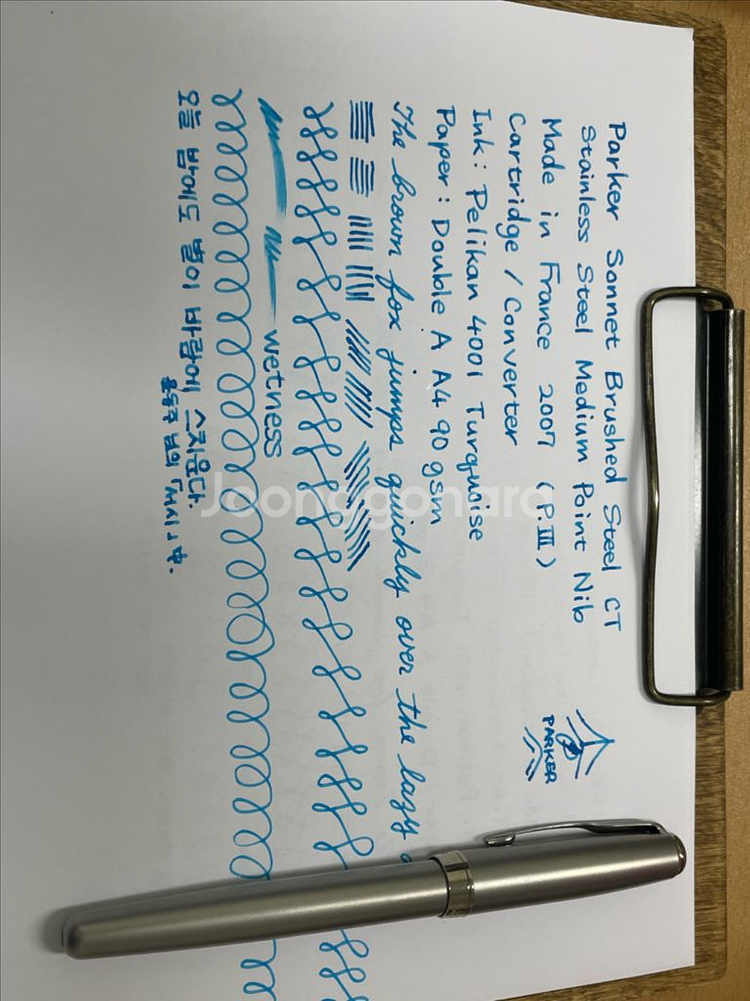 Parker Sonnet Brushed Steel CT
Stainless Steel Medium Point Nib
Made in France 2007 (P.III)
Cartridge / Converter
Ink: Pelikan 4001 Turquoise
Paper: Double A A4 90gsm
PARKER
The brown fox jumps quickly over the lazy
wetness
오늘 밤에도 별이 바람에 스치운다.
윤동주 님의 「서시」 中.
Joonggonara